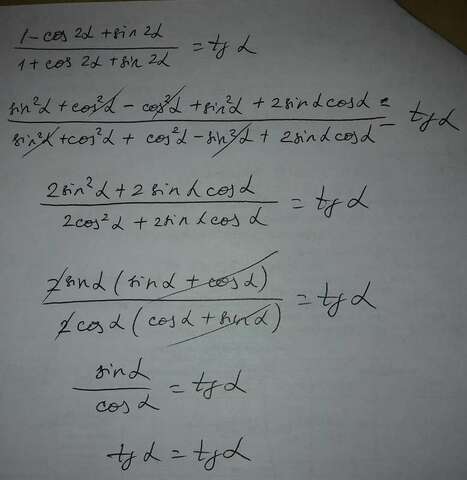 1 - cos 2α + sin 2α / 1 + cos 2α + sin 2α = tg α
sin²α + cos²α - cos²α + sin²α + 2 sin α cos α / sin²α + cos²α + cos²α - sin²α + 2 sin α cos α = tg α
2 sin²α + 2 sin α cos α / 2 cos²α + 2 sin α cos α = tg α
2 sin α (sin α + cos α) / 2 cos α (cos α + sin α) = tg α
sin α / cos α = tg α
tg α = tg α